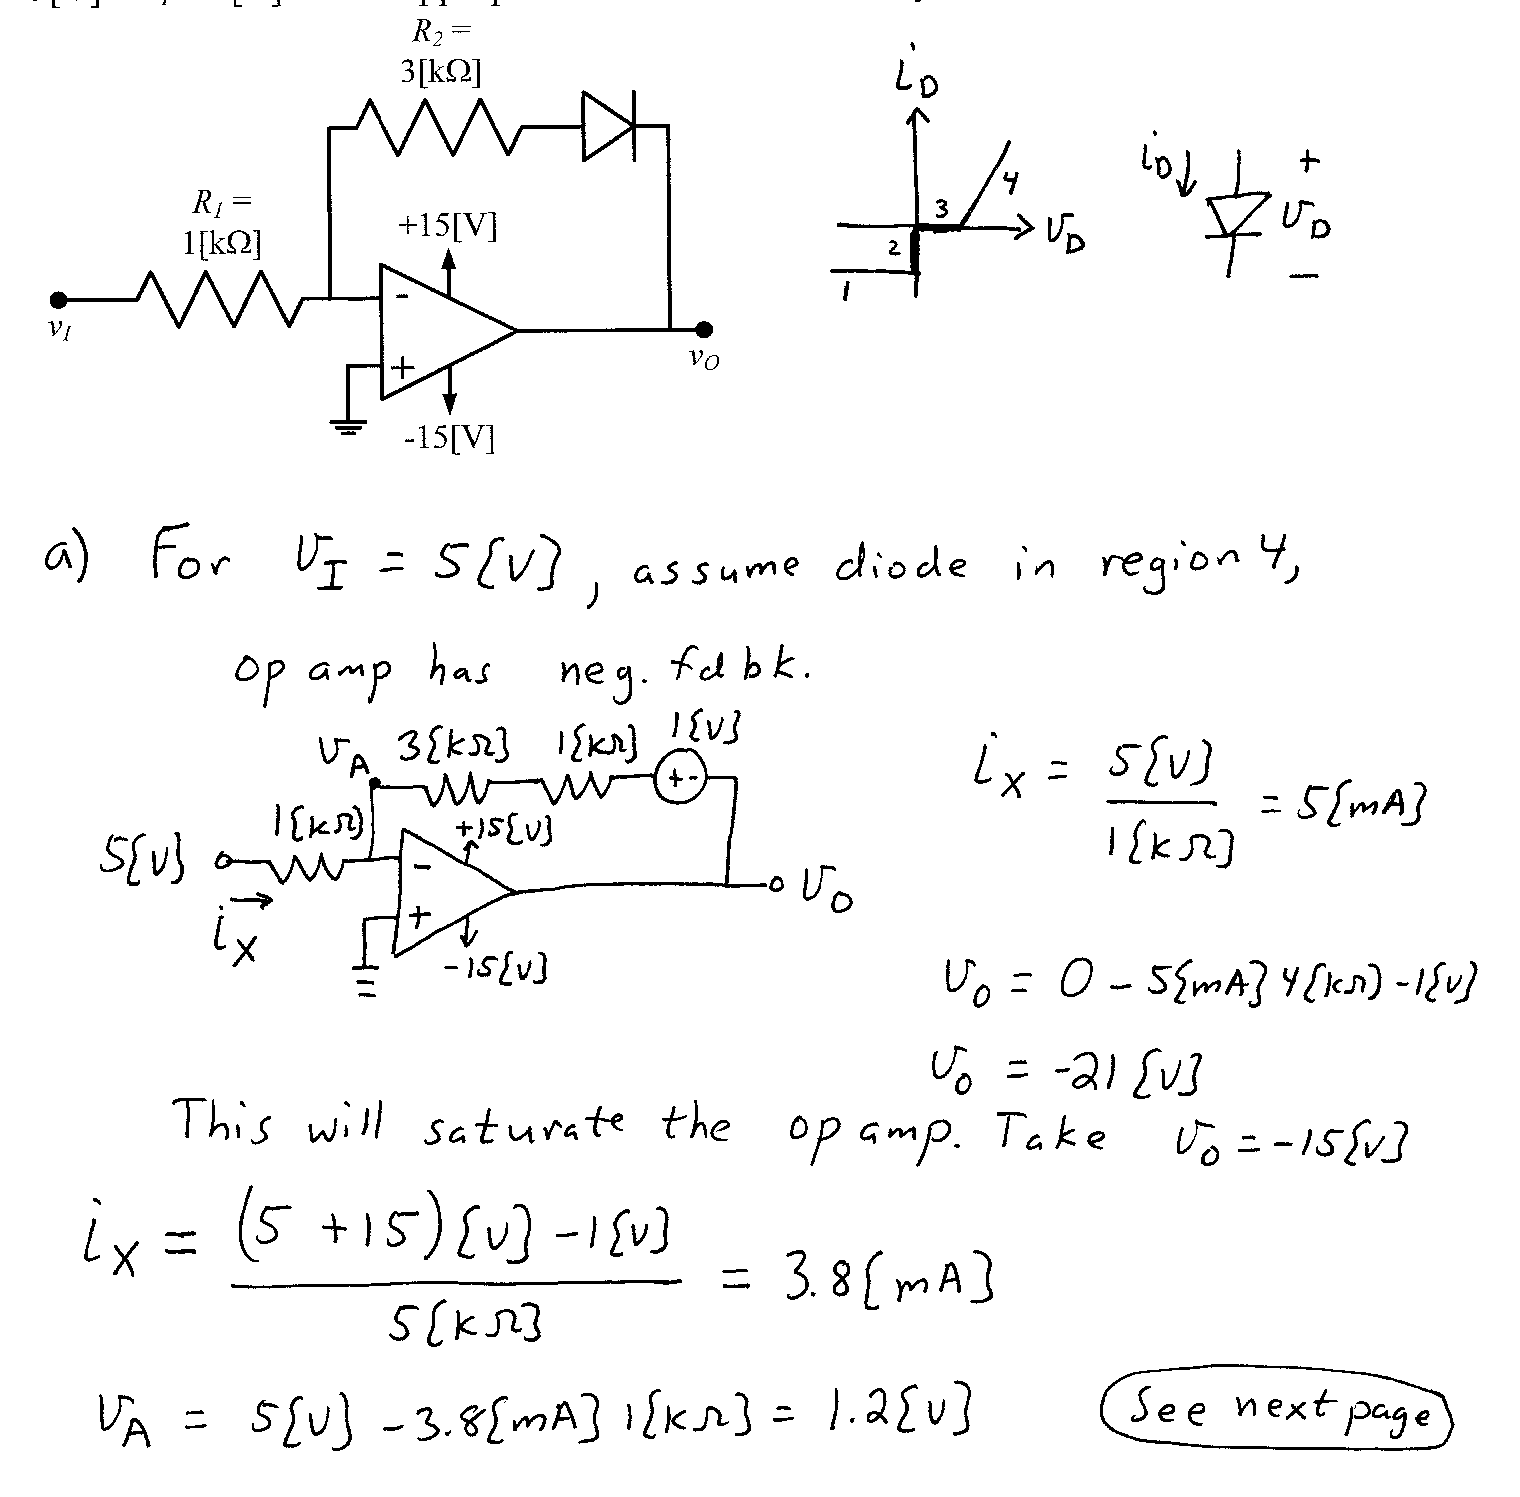 R2 =
3[kΩ]
R1 =
1[kΩ]
+15[V]
-
+
-15[V]
vI
vO
iD
vD
1
2
3
4
iD
+
vD
-
a) For vI = 5{V}, assume diode in region 4,
op amp has neg. fdbk.
vA 3{kΩ} 1{kΩ} 1{V}
+ -
1{kΩ} +15{V}
5{V}
-
+
iX
-15{V}
vO
iX = 5{V} / 1{kΩ} = 5{mA}
vO = 0 - 5{mA}4{kΩ} - 1{V}
vO = -21{V}
This will saturate the op amp. Take vO = -15{V}
iX = (5 + 15){V} - 1{V} / 5{kΩ} = 3.8{mA}
vA = 5{V} - 3.8{mA}1{kΩ} = 1.2{V}
See next page